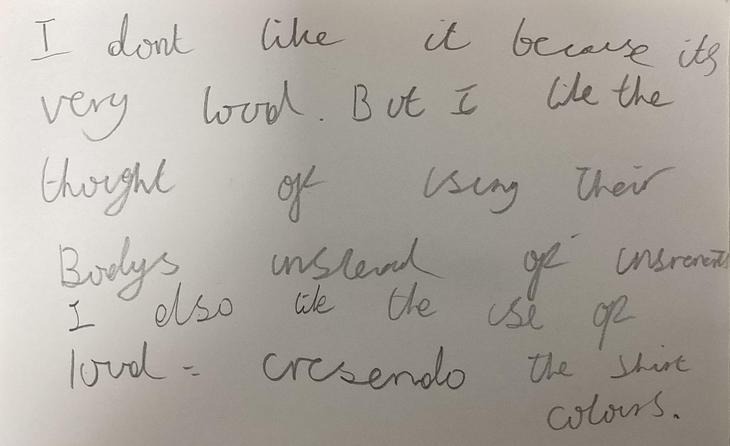 I dont like it because its
very loud. But I like the
thought of using their
Bodys instead of insrements
I also like the use of
loud = cresendo the shirt
colours.